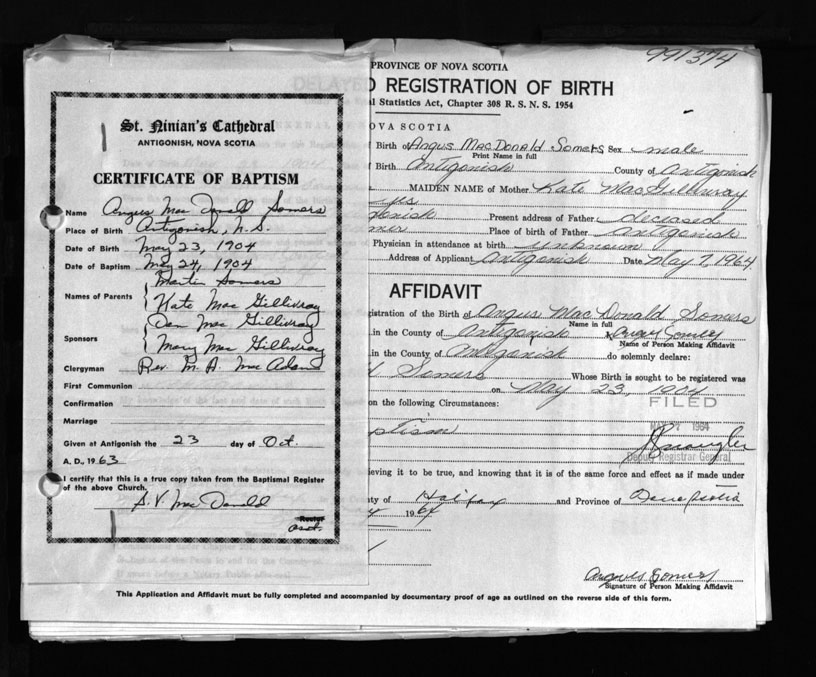 St. Ninian's Cathedral
ANTIGONISH, NOVA SCOTIA
CERTIFICATE OF BAPTISM
Name Angus Mac Donald Somers
Place of Birth Antigonish, N.S.
Date of Birth May 23, 1904
Date of Baptism May 24, 1904
Names of Parents { Martin Somers
Kate Mac Gillivray
Sponsors { Dan Mac Gillivray
Mary Mac Gillivray
Clergyman Rev. M. A. Mac Adam
First Communion
Confirmation
Marriage
Given at Antigonish the 23 day of Oct.
A. D., 1963
I certify that this is a true copy taken from the Baptismal Register
of the above Church.
S. V. Mac Donald
Rector
asst.
991374
PROVINCE OF NOVA SCOTIA
DELAYED REGISTRATION OF BIRTH
l Statistics Act, Chapter 308 R. S. N. S. 1954
OVA SCOTIA
Birth of Angus MacDonald Somers Sex male
Print Name in full
Birth Antigonish County of Antigonish
MAIDEN NAME of Mother Kate MacGillivray
gonish Present address of Father deceased
Place of birth of Father Antigonish
Physician in attendance at birth unknown
Address of Applicant Antigonish Date May 7, 1964
AFFIDAVIT
gistration of the Birth of Angus Mac Donald Somers
Name in full
in the County of Antigonish Angus Somers
Name of Person Making Affidavit
in the County of Antigonish do solemnly declare:
Somers Whose Birth is sought to be registered was
on May 23, 1904
on the following Circumstances:
FILED
1964
ptism
Deputy Registrar General
ieving it to be true, and knowing that it is of the same force and effect as if made under
ty of Halifax and Province of Nova Scotia
1964
Angus Somers
Signature of Person Making Affidavit
This Application and Affidavit must be fully completed and accompanied by documentary proof of age as outlined on the reverse side of this form.